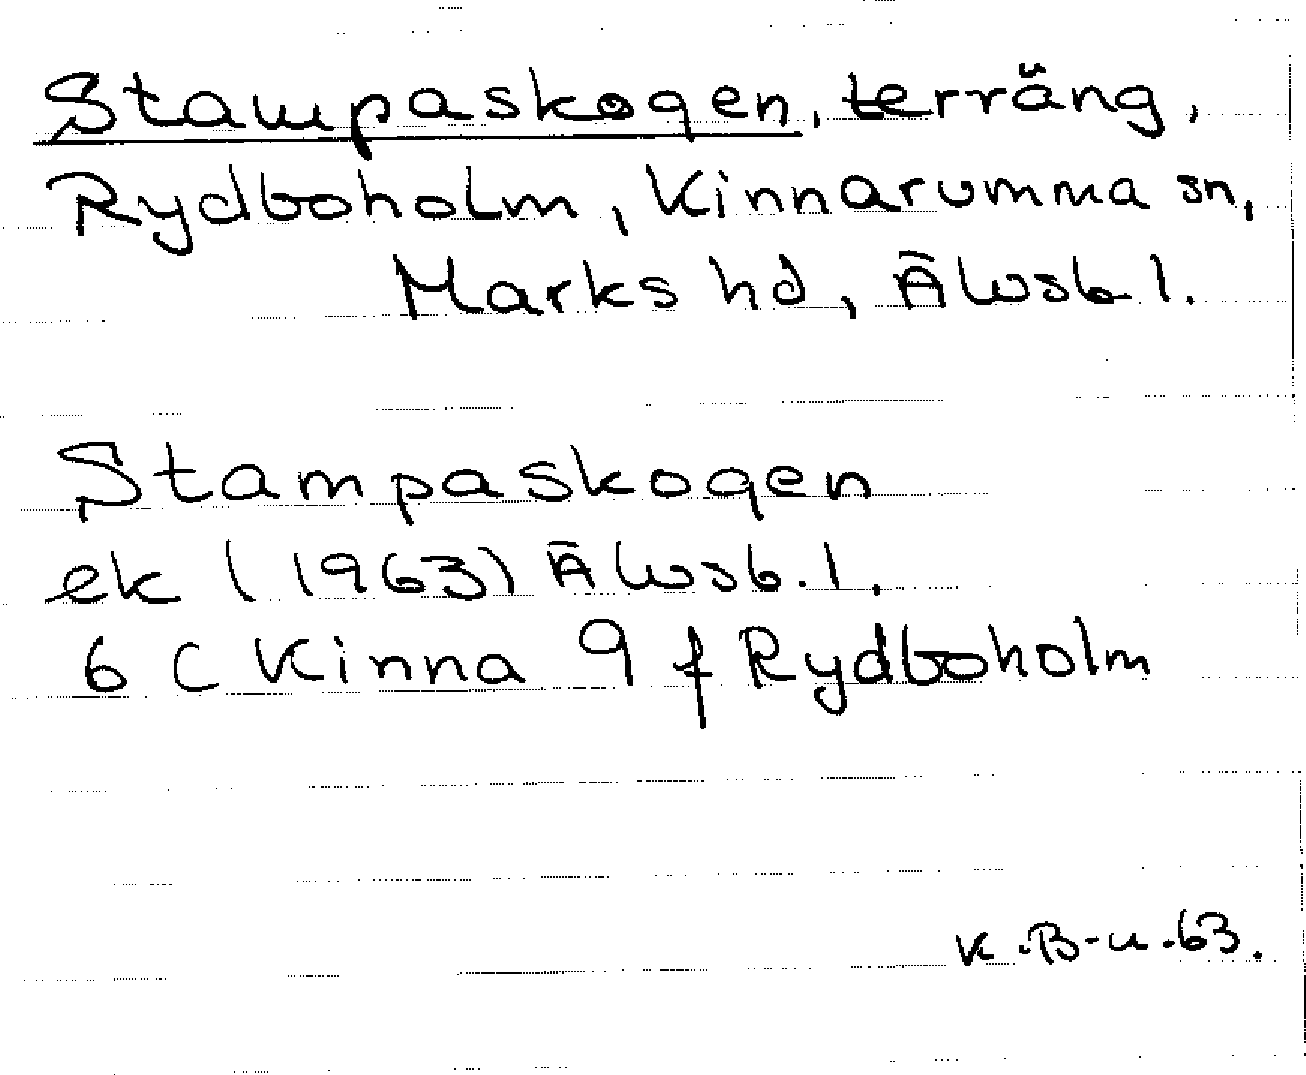 Stampaskogen, terräng,
Rydboholm, Kinnarumma sn,
Marks hd, Älvsb. l.
Stampaskogen
ek (1963) Älvsb. l.
6 C Kinna 9 f Rydboholm
K.B-u.63.